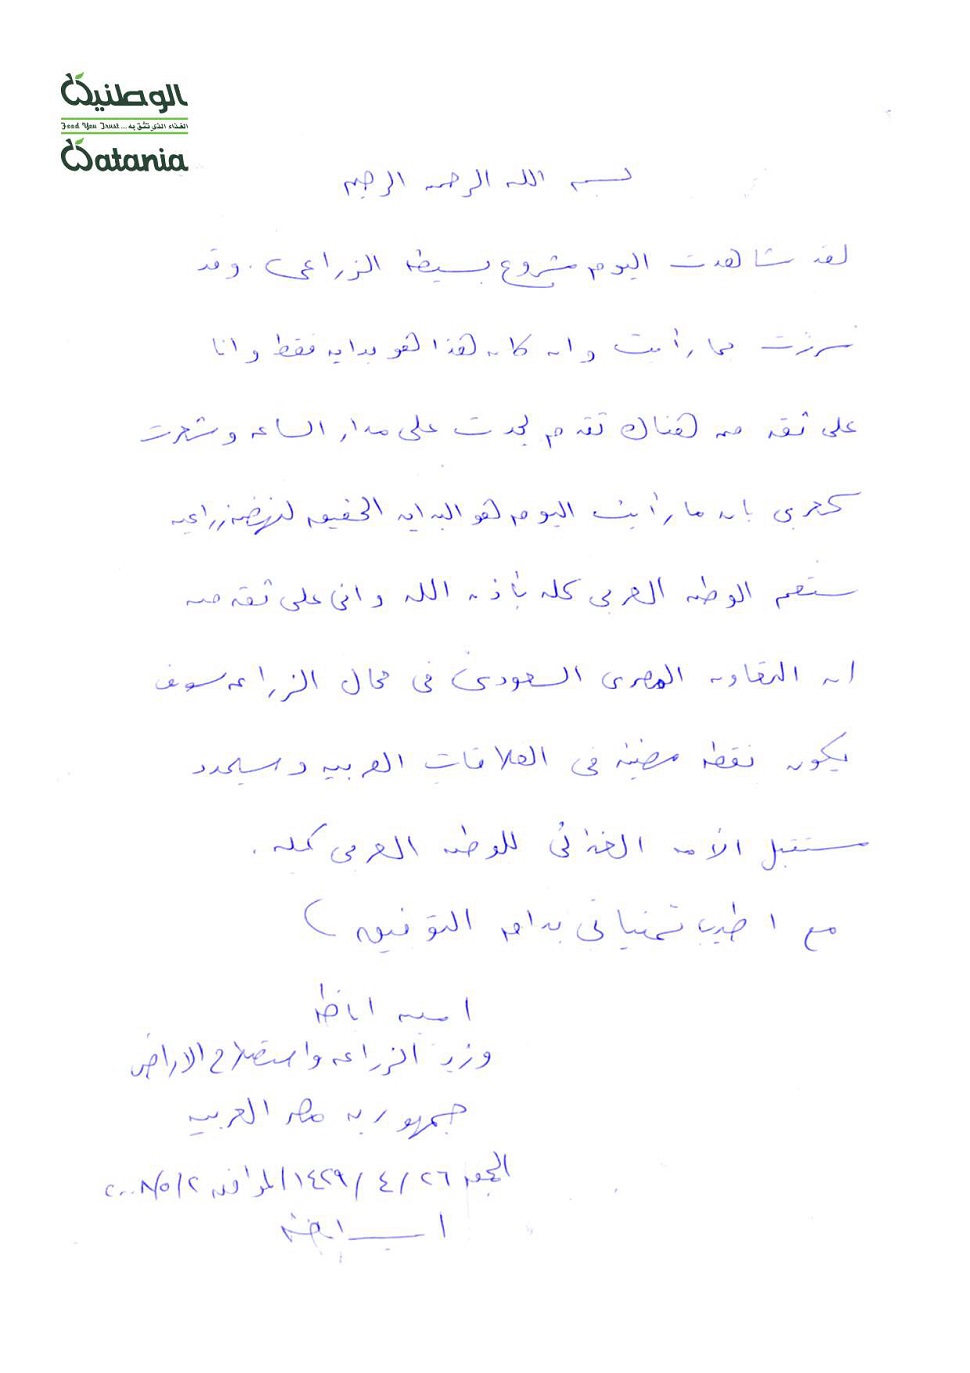 الوطنية
Food You Trust... الغذاء الذي تثق به
Watania
بسم الله الرحمن الرحيم
لقد شاهدت اليوم مشروع بسيطه الزراعى . وقد
سررت مما رأيت وان كان هذا هو بدايه فقط وانا
على ثقه من هناك تقدم يحدث على مدار الساعه وشعرت
كعربى بان ما رأيت اليوم هو البدايه الحقيقيه لنهضه زراعيه
ستعم الوطن العربى كله بأذن الله وانى على ثقه من
ان التعاون المصرى السعودى فى مجال الزراعه سوف
يكون نقطه مضيئه فى العلاقات العربيه وسيحدد
مستقبل الأمن الغذائى للوطن العربى كله .
مع اطيب تمنياتى بدوام التوفيق ،
امين اباظه
وزير الزراعه واستصلاح الاراضى
جمهوريه مصر العربيه
الجمعه ٢٦ / ٤ / ١٤٢٩ الموافق ٢ / ٥ / ٢٠٠٨